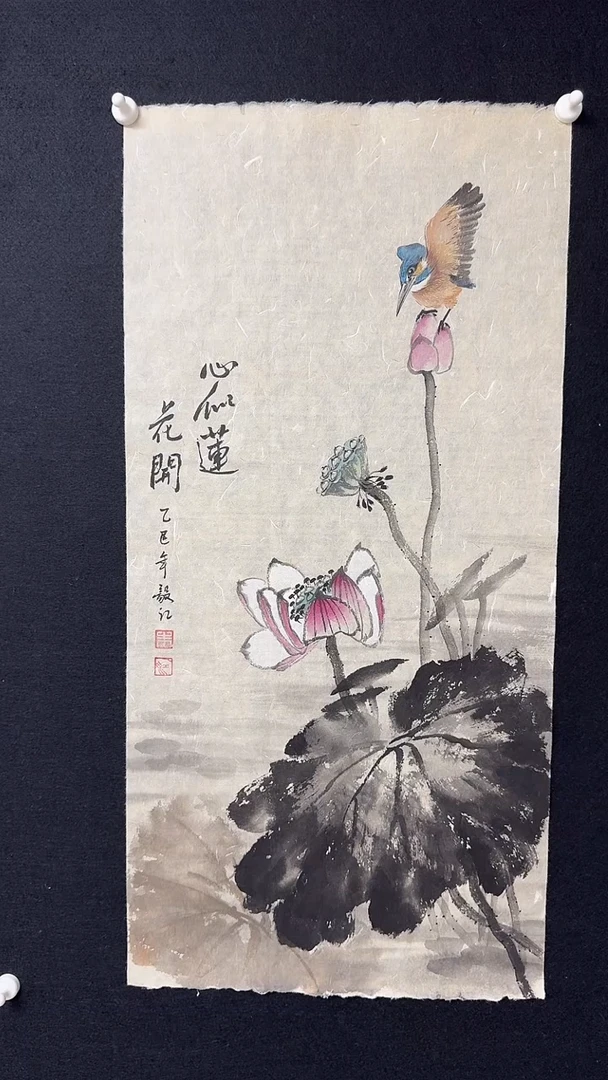 心似蓮
花開
乙巳年毅江